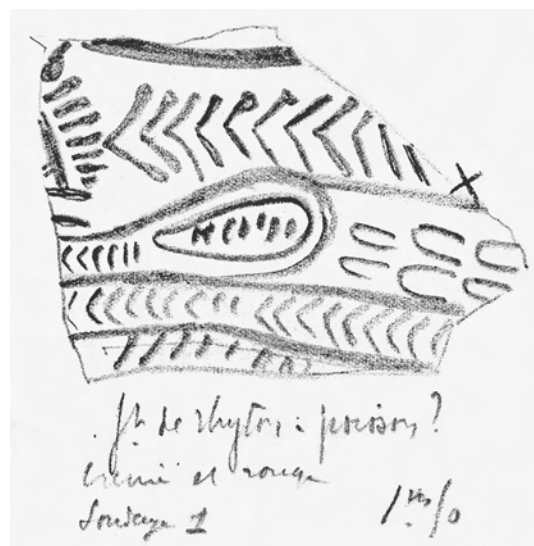 fgt de rhyton : poisson ?
crème et rouge
Sondage 1